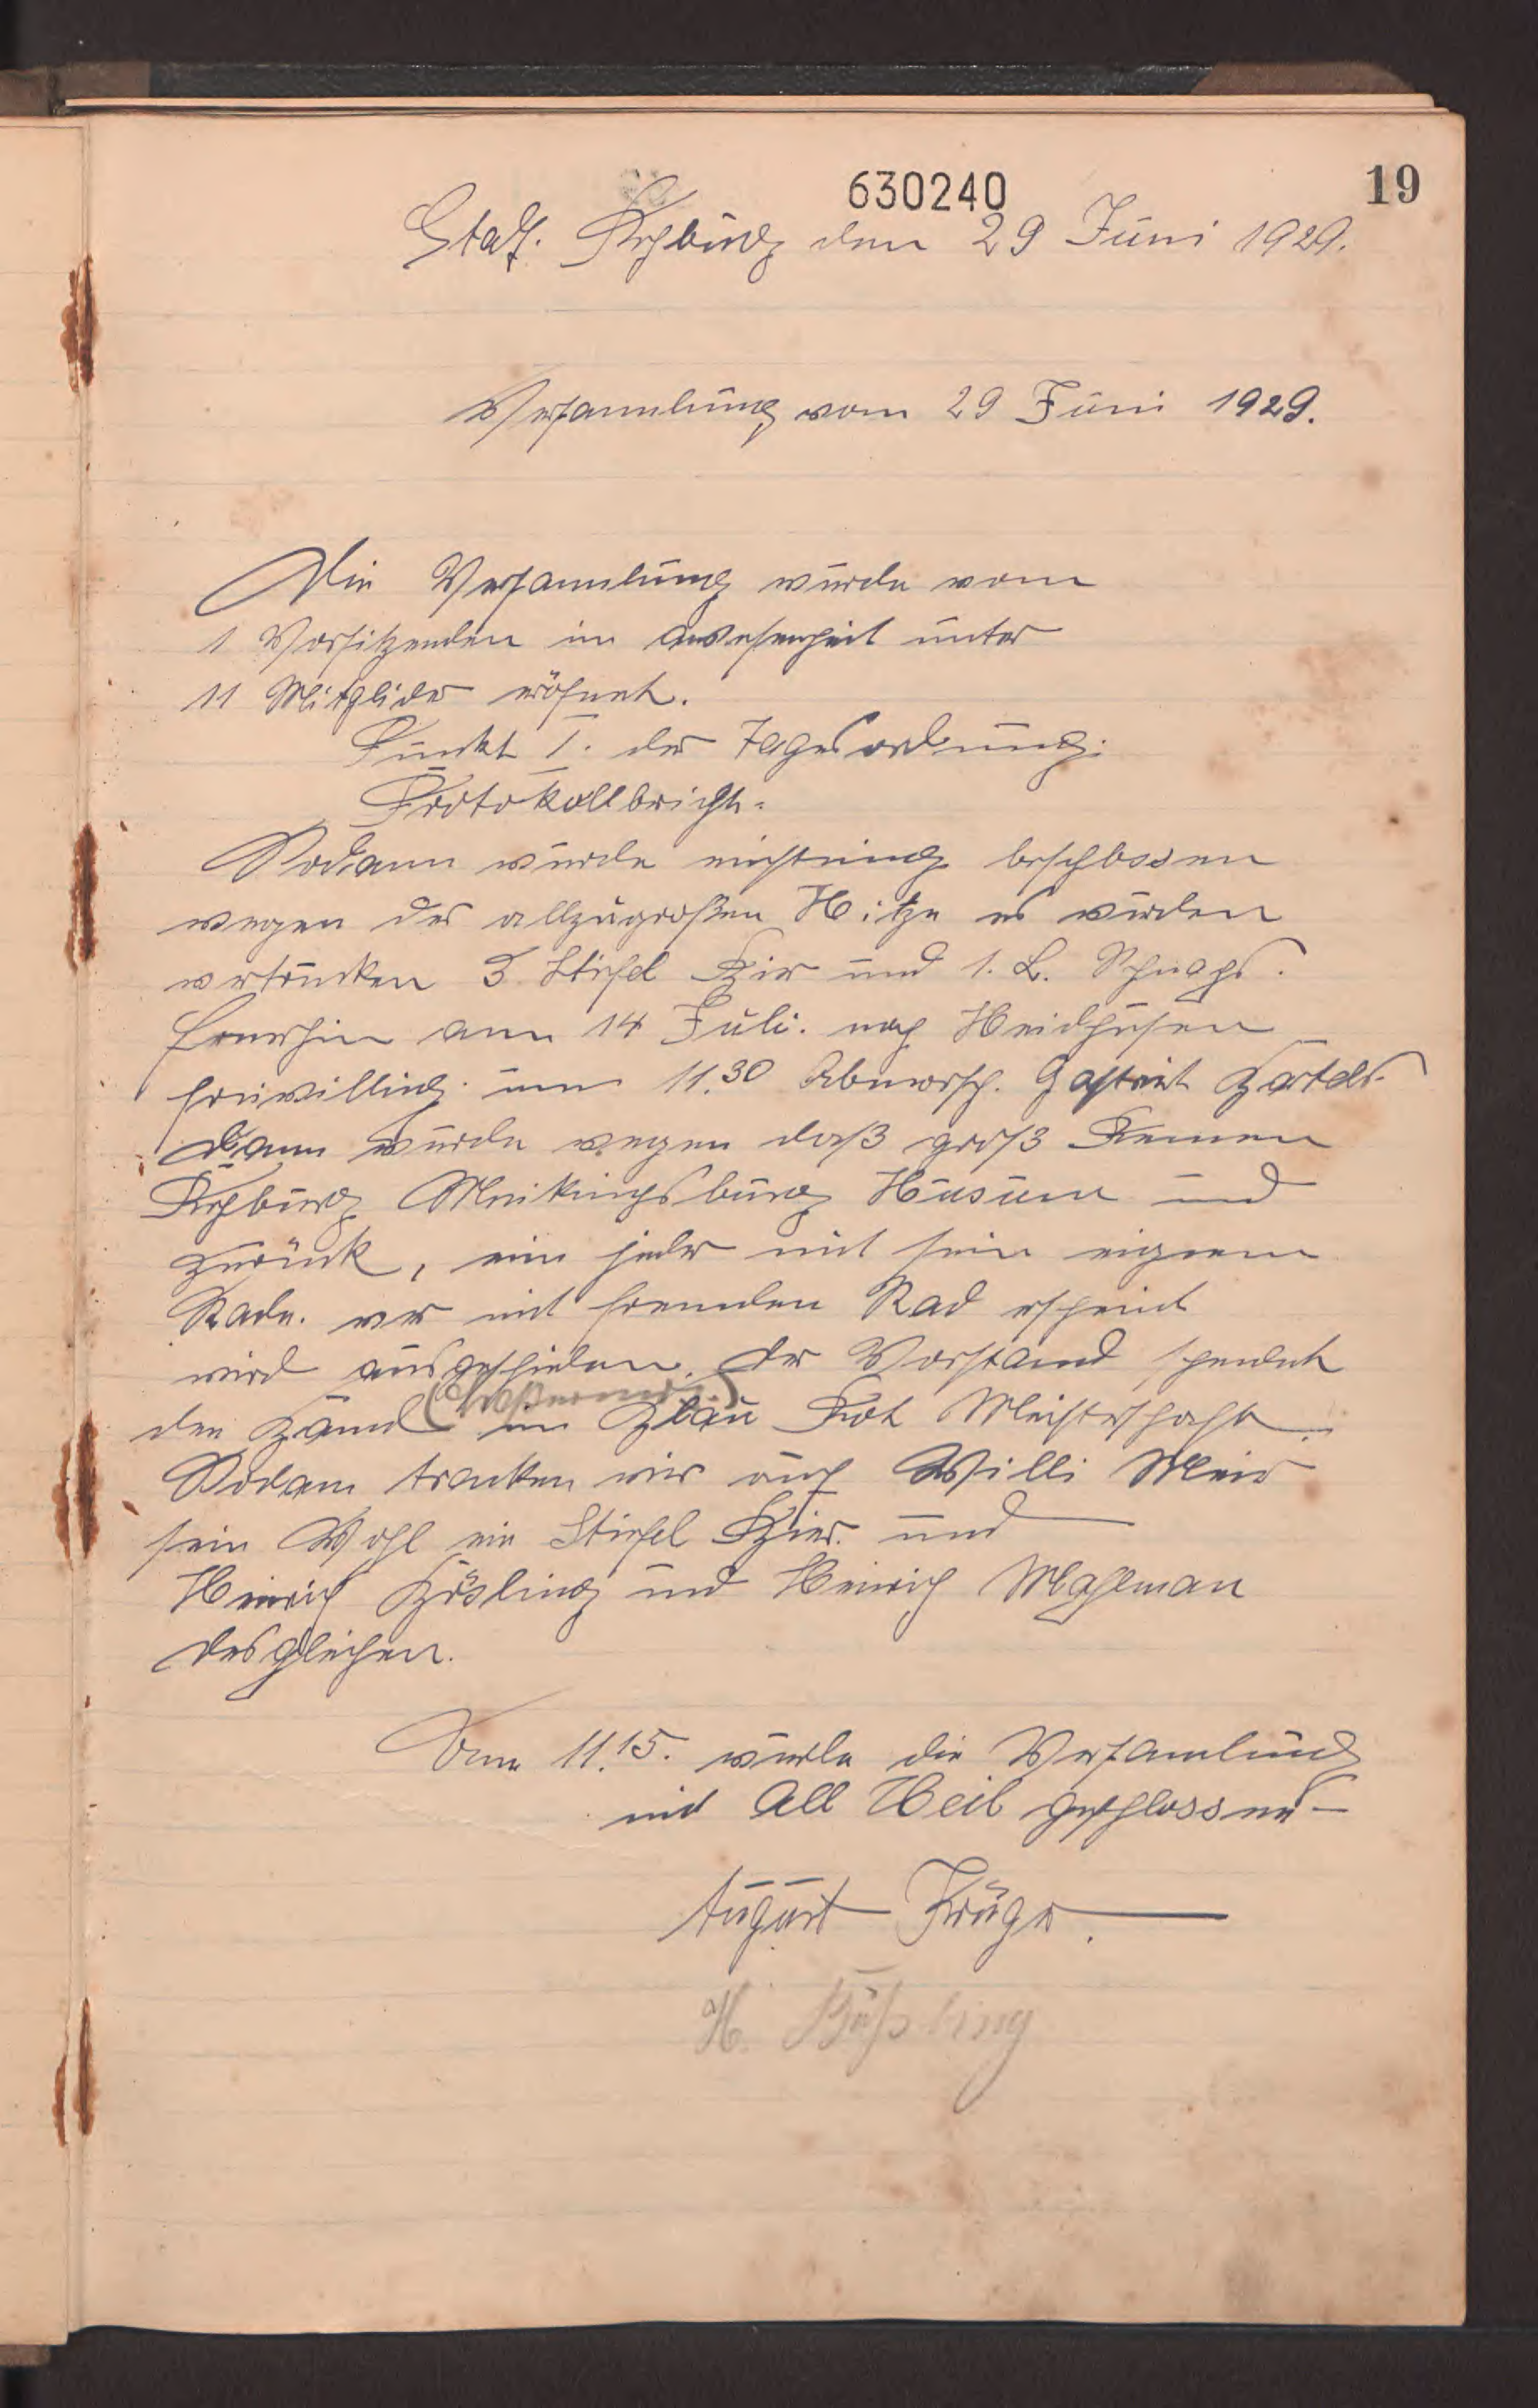 630240
19
Stat. Rehburg den 29 Juni 1929.
Versammlung vom 29 Juni 1929.
Die Versammlung wurde vom
1 Vorsitzenden im Anwesenheit unter
11 Mitglider eröfnet.
Punkt I. der Tagesordnung.
Protokollbricht.
Sodann wurde einstimig beschlossen
wegen der allzugroßen Hitze es wurden
vertrunken 3 Stiefel Bier und 1. L. Schnaps.
Fernerhin am 14 Juli. nach Heidhusen
freiwillig um 11.30 Abmarsch. Gastwirt
Dann wurde wegen daß groß Rennen
Rehburg Husum und
zurück, ein jeder mit sein eignem
Rade. wer mit fremden Rad erscheint
wird ausgeschieden. Der Vorstand spendet
den im Blau Rot Meisterschaft.
Sodann tranken wir auf Willi Meier
sein Wohl ein Stiefel Bier. und
Heinrich und Heinrich Mahlman
desgleichen.
Um 11.15. wurde die Versamlung
mit All Heil geschlossen –
August Krüger.
H.